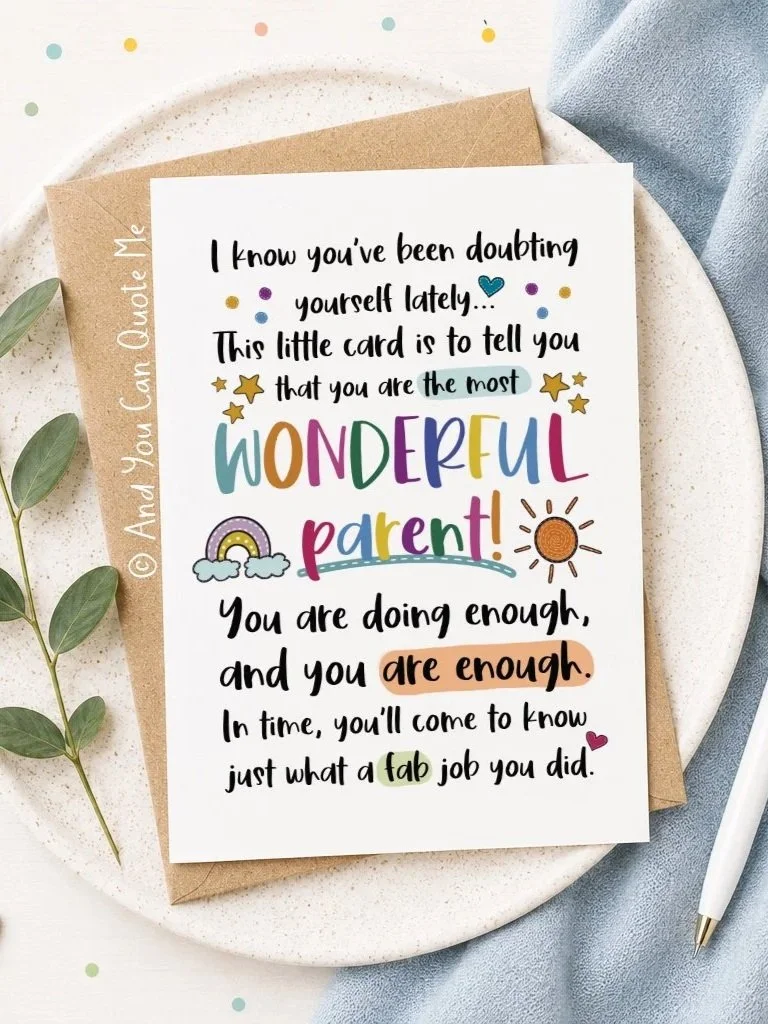 I know you've been doubting
yourself lately...
This little card is to tell you
that you are the most
WONDERFUL
parent!
You are doing enough,
and you are enough.
In time, you'll come to know
just what a fab job you did.
© And You Can Quote Me